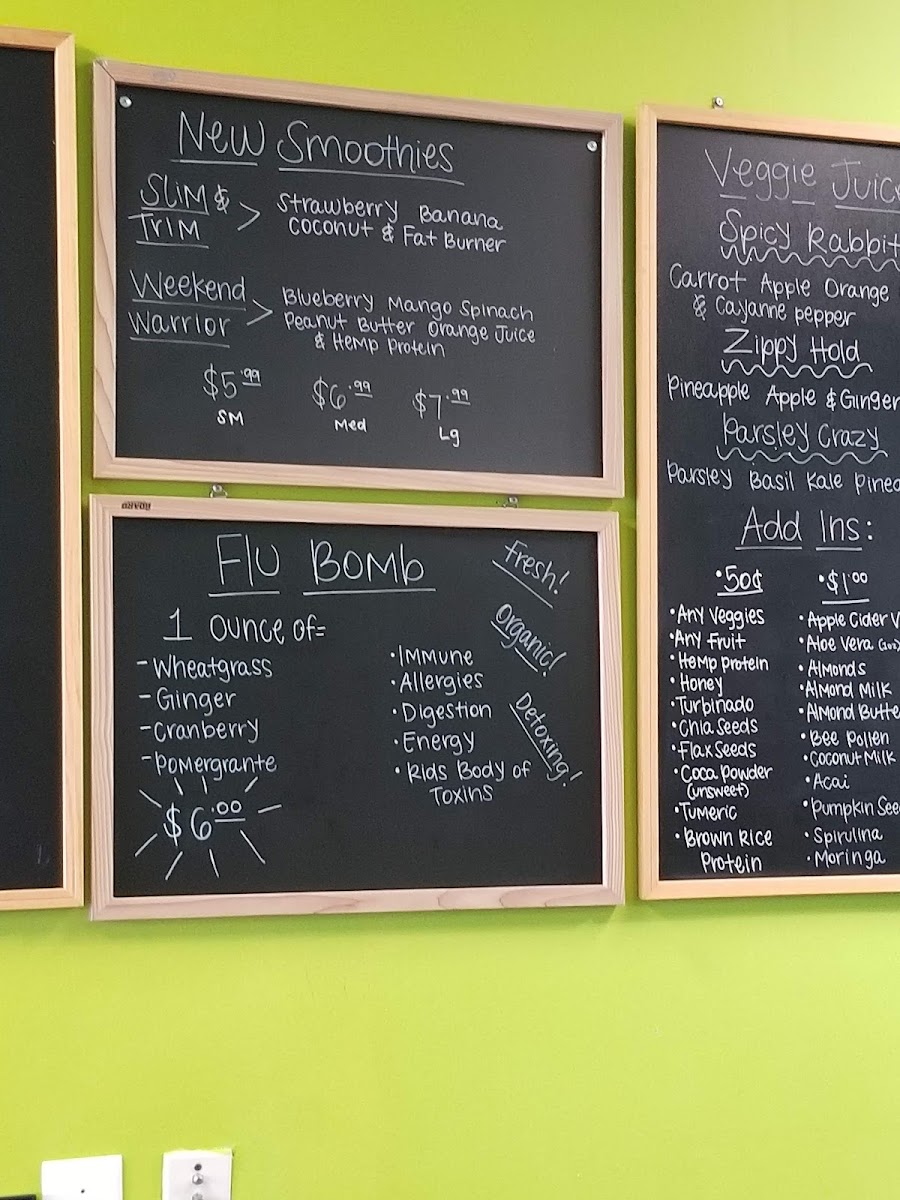 New Smoothies
Slim &
Trim > Strawberry Banana
Coconut & Fat Burner
Weekend
Warrior > Blueberry Mango Spinach
Peanut Butter Orange Juice
& Hemp Protein
$5.99 $6.99 $7.99
SM Med Lg
Flu Bomb
1 ounce of=
-Wheatgrass
-Ginger
-Cranberry
-Pomergrante
$6.00
•Immune
•Allergies
•Digestion
•Energy
•Rids Body of
Toxins
Fresh!
Organic!
Detoxing!
Veggie Juice
Spicy Rabbit
Carrot Apple Orange
& Cayanne pepper
Zippy Hold
Pineapple Apple & Ginger
Parsley Crazy
Parsley Basil Kale
Add Ins:
•50¢
•Any Veggies
•Any Fruit
•Hemp protein
•Honey
•Turbinado
•Chia Seeds
•Flax Seeds
•Coca Powder
(unsweet)
•Tumeric
•Brown Rice
Protein
•$1.00
•Apple Cider
•Aloe Vera
•Almonds
•Almond Milk
•Almond Butte
•Bee Pollen
•Coconut Milk
•Acai
•Pumpkin See
•Spirulina
•Moringa